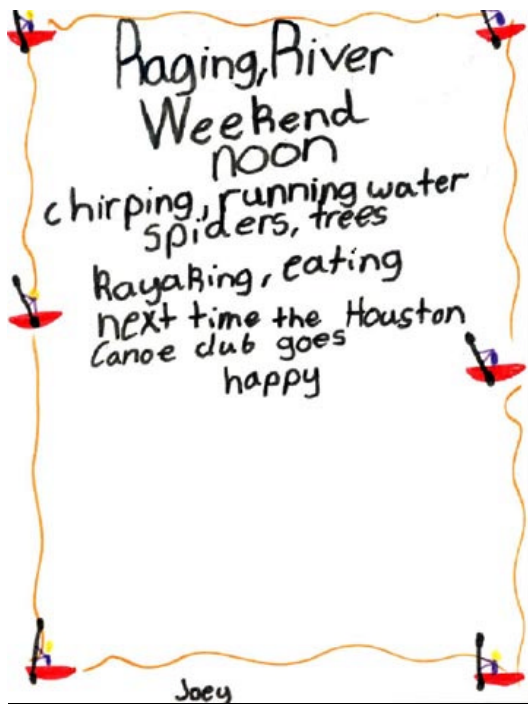 Raging, River
Weekend
noon
chirping, running water
spiders, trees
Kayaking, eating
next time the Houston
Canoe club goes
happy
Joey